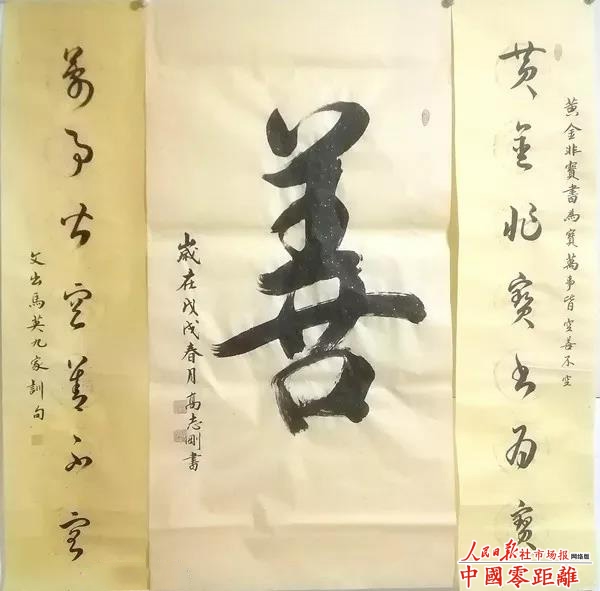 黄金非寳書為寳萬事皆空善不空
黄金非寶書為寶
善
歲在戊戌春月高志剛書
萬事皆空善不空
文出馬英九家訓句
人民日报社市场报网络版
中國零距離